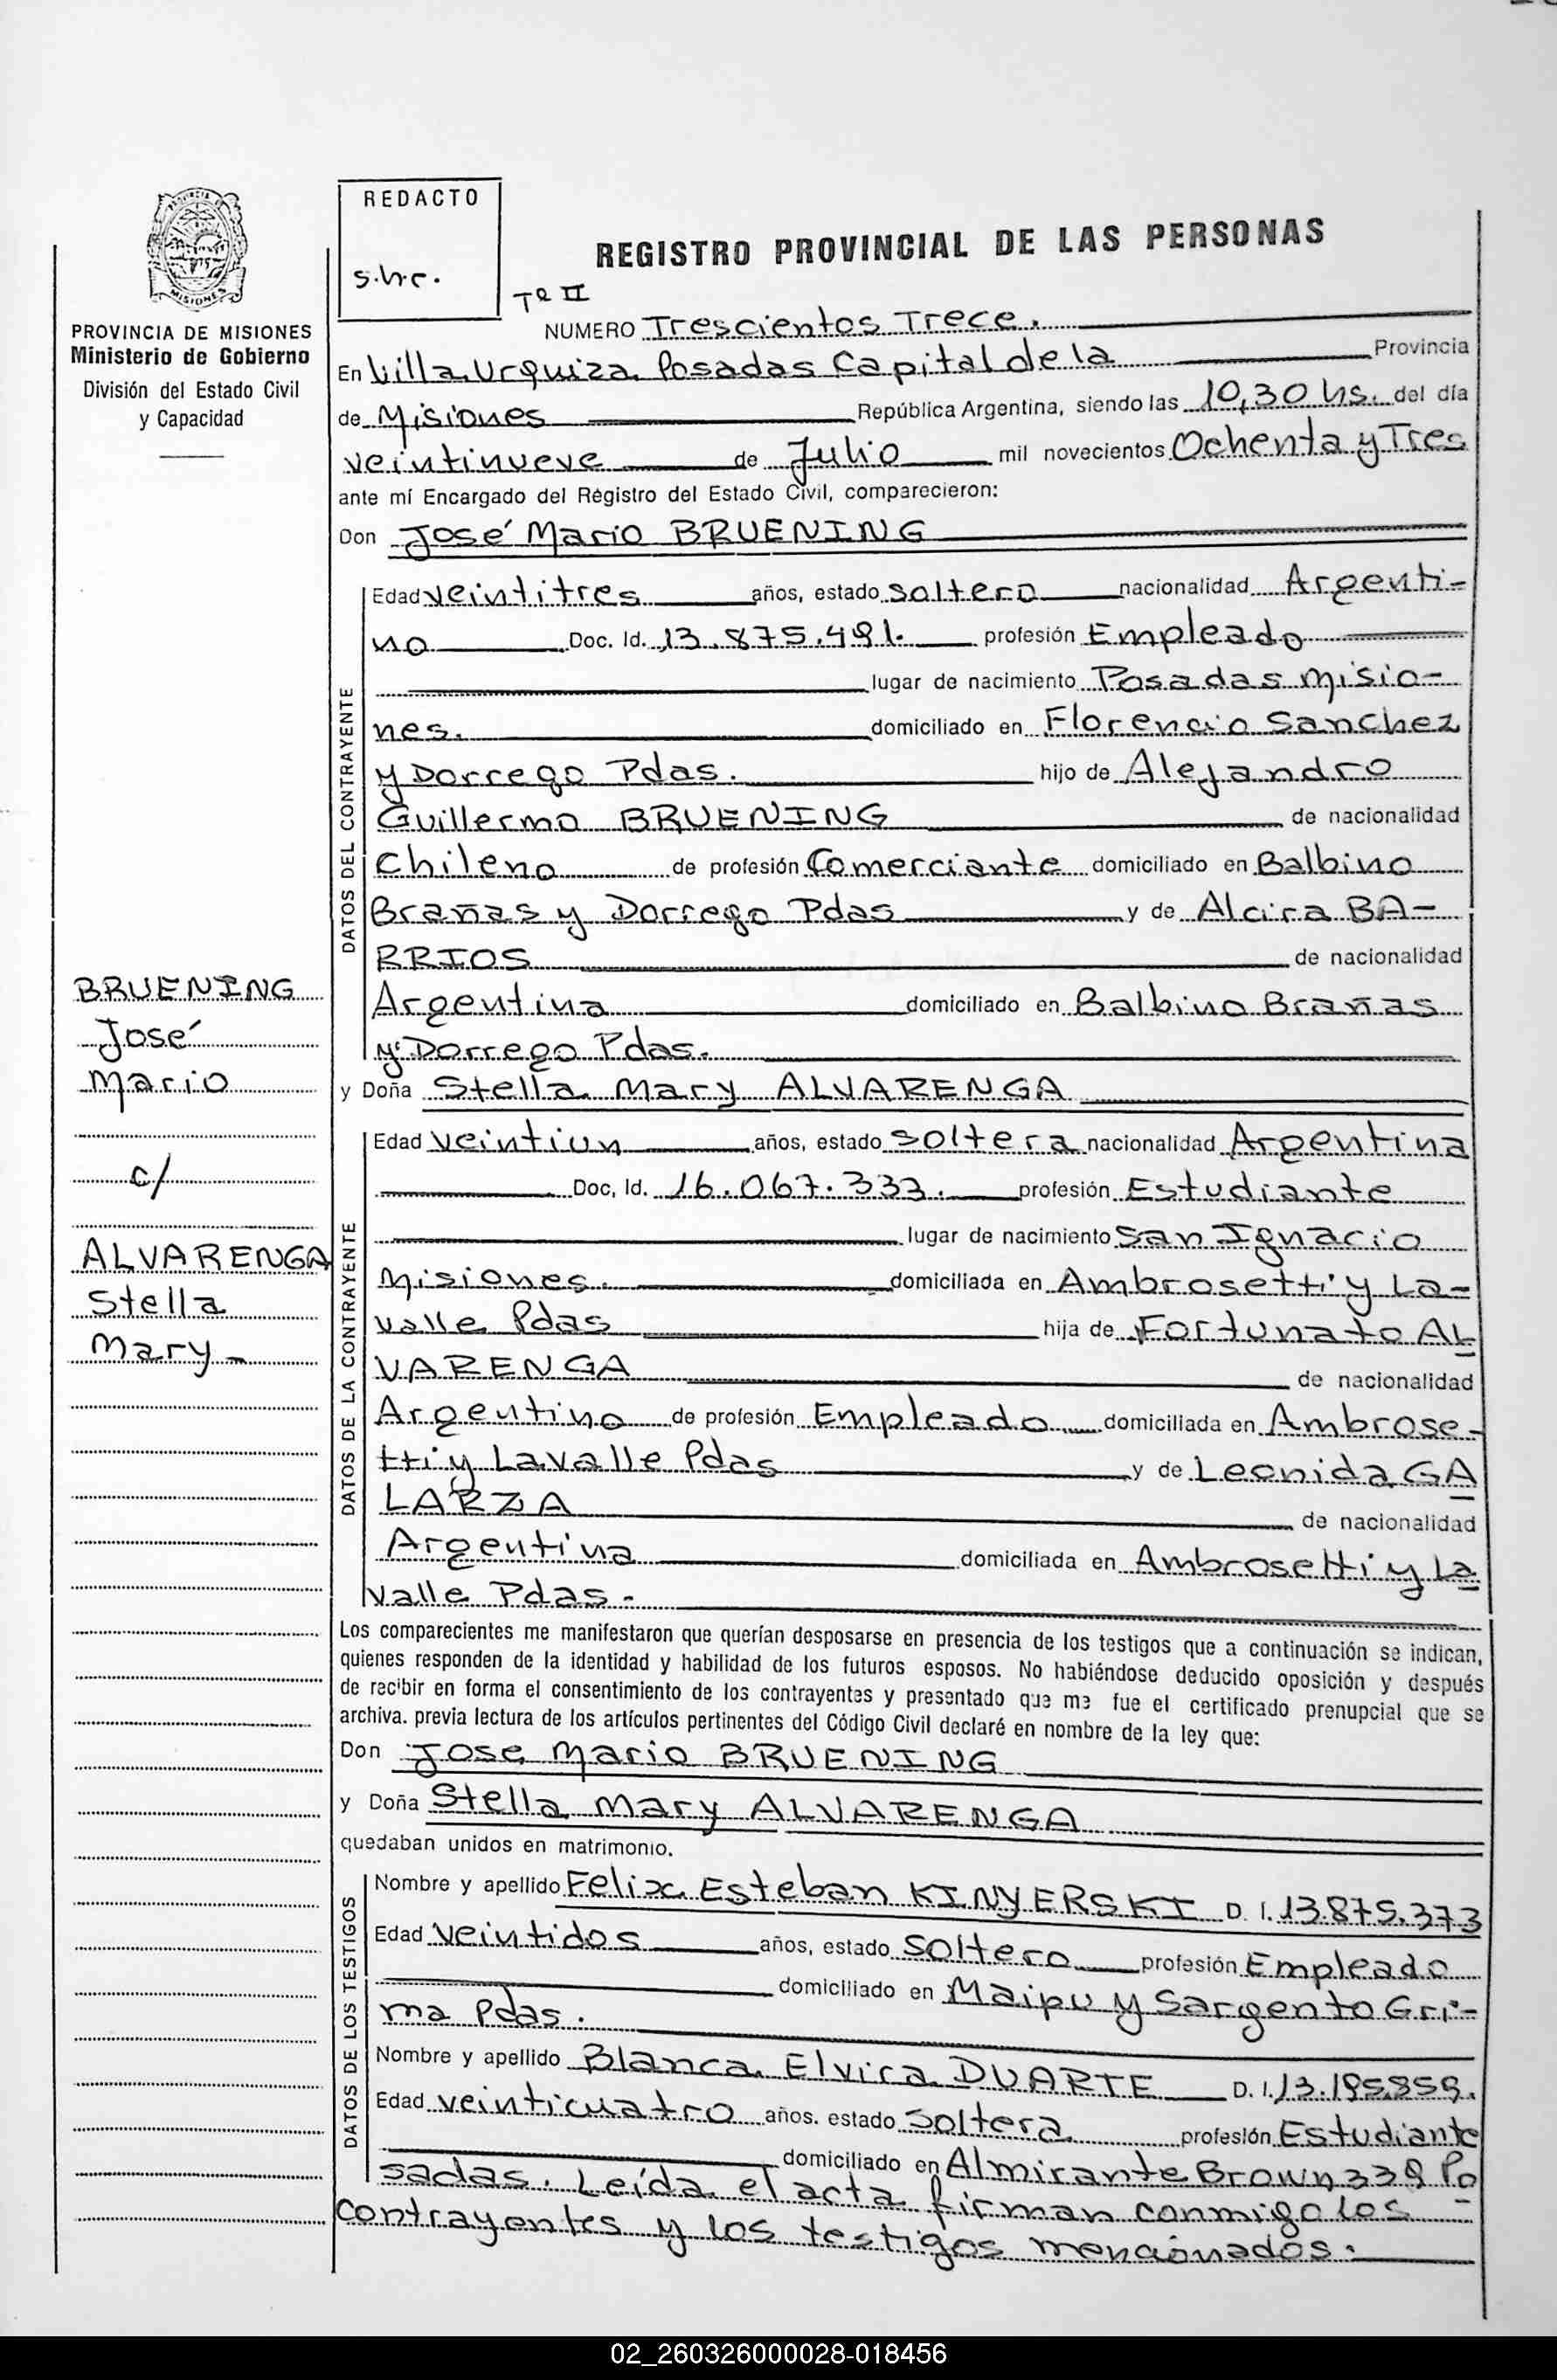 REDACTO
s.h.c.
REGISTRO PROVINCIAL DE LAS PERSONAS
Tº II
NUMERO Trescientos Trece.
PROVINCIA DE MISIONES
Ministerio de Gobierno
División del Estado Civil
y Capacidad
En Villa Urquiza Posadas Capital de la Provincia
de Misiones República Argentina, siendo las 10,30 hs. del día
veintinueve de Julio mil novecientos Ochenta y Tres
ante mí Encargado del Régistro del Estado Civil, comparecieron:
Don José Mario BRUENING
DATOS DEL CONTRAYENTE
Edad veintitres años, estado soltero nacionalidad Argenti-
no Doc. Id. 13.875.491. profesión Empleado
lugar de nacimiento Posadas Misio-
nes. domiciliado en Florencio Sanchez
y Dorrego Pdas. hijo de Alejandro
Guillermo BRUENING de nacionalidad
Chileno de profesión Comerciante domiciliado en Balbino
Brañas y Dorrego Pdas y de Alcira BA-
RRIOS de nacionalidad
Argentina domiciliado en Balbino Brañas
y Dorrego Pdas.
BRUENING
José
Mario
c/
ALVARENGA
Stella
Mary-
y Doña Stella Mary ALVARENGA
DATOS DE LA CONTRAYENTE
Edad veintiun años, estado soltera nacionalidad Argentina
Doc, Id. 16.067.333. profesión Estudiante
lugar de nacimiento San Ignacio
Misiones. domiciliada en Ambrosetti y La-
valle Pdas hija de Fortunato AL
VARENGA de nacionalidad
Argentino de profesión Empleado domiciliada en Ambrose-
tti y Lavalle Pdas y de Leonida GA
LARZA de nacionalidad
Argentina domiciliada en Ambrosetti y La
valle Pdas-
Los comparecientes me manifestaron que querían desposarse en presencia de los testigos que a continuación se indican,
quienes responden de la identidad y habilidad de los futuros esposos. No habiéndose deducido oposición y después
de recibir en forma el consentimiento de los contrayentes y presentado que me fue el certificado prenupcial que se
archiva. previa lectura de los artículos pertinentes del Código Civil declaré en nombre de la ley que:
Don Jose Mario BRUENING
y Doña Stella Mary ALVARENGA
quedaban unidos en matrimonio.
DATOS DE LOS TESTIGOS
Nombre y apellido Felix Esteban KINYERSKI D. I. 13.875.373
Edad veintidos años, estado Soltero profesión Empleado
domiciliado en Maipu y Sargento Gri-
ma Pdas.
Nombre y apellido Blanca Elvira DUARTE D. I. 13.195.859.
Edad veinticuatro años. estado Soltera profesión Estudiante
domiciliado en Almirante Brown 339 Po
sadas. Leída el acta firman conmigo los
contrayentes y los testigos mencionados.
02_260326000028-018456